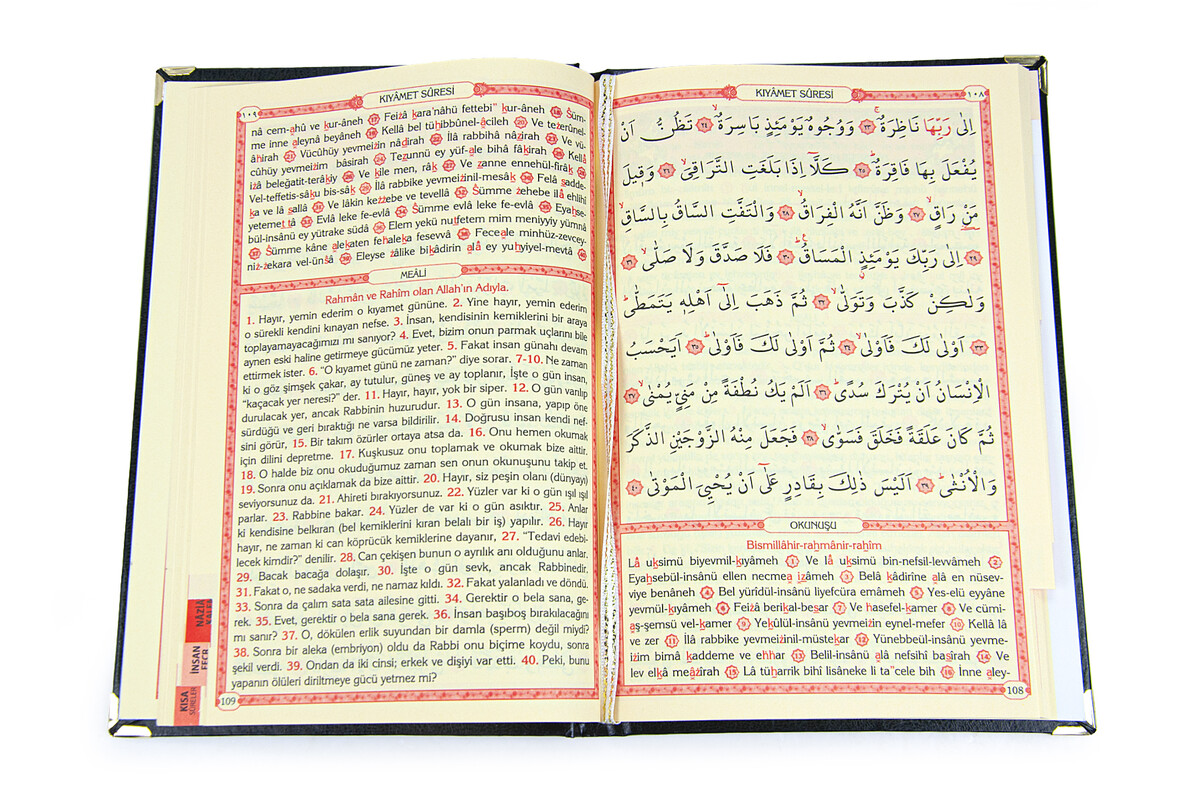 KIYÂMET SÛRESİ
١٠٨
اِلٰى رَبِّهَا نَاظِرَةٌۚ ٢٣ وَوُجُوهٌ يَوْمَئِذٍ بَاسِرَةٌۙ ٢٤ تَظُنُّ اَنْ
يُفْعَلَ بِهَا فَاقِرَةٌۜ ٢٥ كَلَّٓا اِذَا بَلَغَتِ التَّرَاقِيَۙ ٢٦ وَق۪يلَ
مَنْ رَاقٍۙ ٢٧ وَظَنَّ اَنَّهُ الْفِرَاقُۙ ٢٨ وَالْتَفَّتِ السَّاقُ بِالسَّاقِۙ
٢٩ اِلٰى رَبِّكَ يَوْمَئِذٍۨ الْمَسَاقُۜ ٣٠ فَلَا صَدَّقَ وَلَا صَلّٰىۙ ٣١
وَلٰكِنْ كَذَّبَ وَتَوَلّٰىۙ ٣٢ ثُمَّ ذَهَبَ اِلٰٓى اَهْلِه۪ يَتَمَطّٰىۜ
٣٣ اَوْلٰى لَكَ فَاَوْلٰىۙ ٣٤ ثُمَّ اَوْلٰى لَكَ فَاَوْلٰىۜ ٣٥ اَيَحْسَبُ
الْاِنْسَانُ اَنْ يُتْرَكَ سُدًىۜ ٣٦ اَلَمْ يَكُ نُطْفَةً مِنْ مَنِيٍّ يُمْنٰىۙ ٣٧
ثُمَّ كَانَ عَلَقَةً فَخَلَقَ فَسَوّٰىۙ ٣٨ فَجَعَلَ مِنْهُ الزَّوْجَيْنِ الذَّكَرَ
وَالْاُنْثٰىۜ ٣٩ اَلَيْسَ ذٰلِكَ بِقَادِرٍ عَلٰٓى اَنْ يُحْيِيَ الْمَوْتٰى ٤٠
OKUNUŞU
Bismillâhir-rahmânir-rahîm
Lâ uksimü biyevmil-kıyâmeh 1 Ve lâ uksimü bin-nefsil-levvâmeh 2
Eyahsebül-insânü ellen necmea izâmeh 3 Belâ kâdirîne alâ en nüsev-
viye benâneh 4 Bel yürîdül-insânü liyefcüra emâmeh 5 Yes-elü eyyâne
yevmül-kıyâmeh 6 Feizâ berikal-besar 7 Ve hasefel-kamer 8 Ve cümi-
aş-şemsü vel-kamer 9 Yekûlül-insânü yevmeizin eynel-mefer 10 Kellâ lâ
ve zer 11 İlâ rabbike yevmeizinil-müstekar 12 Yünebbeül-insânü yevme-
izim bimâ kaddeme ve ehhar 13 Belil-insânü alâ nefsihî basîrah 14 Ve
lev elkâ meâzîrah 15 Lâ tüharrik bihî lisâneke li ta"cele bih 16 İnne aley-
108
١٠٩
KIYÂMET SÛRESİ
nâ cem-ahû ve kur-âneh 17 Feizâ kara'nâhü fettebi" kur-âneh 18 Süm-
me inne aleynâ beyâneh 19 Kellâ bel tühibbûnel-âcileh 20 Ve tezerûnel-
âhirah 21 Vücûhüy yevmeizin nâdirah 22 İlâ rabbihâ nâzirah 23 Ve vü-
cûhüy yevmeizim bâsirah 24 Tezunnü ey yüf-ale bihâ fâkirah 25 Kellâ
izâ beleğatit-terâkiy 26 Ve kîle men, râk 27 Ve zanne ennehül-firâk 28
Vel-teffetis-sâku bis-sâk 29 İlâ rabbike yevmeizinil-mesâk 30 Felâ sadde-
ka ve lâ sallâ 31 Ve lâkin kezzebe ve tevellâ 32 Sümme zehebe ilâ ehlihî
yetemettâ 33 Evlâ leke fe-evlâ 34 Sümme evlâ leke fe-evlâ 35 Eyahse-
bül-insânü ey yütrake südâ 36 Elem yekü nutfetem mim meniyyiy yümnâ
37 Sümme kâne alekaten fehaleka fesevvâ 38 Feceale minhüz-zevcey-
niz-zekara vel-ünsâ 39 Eleyse zâlike bikâdirin alâ ey yuhyiyel-mevtâ 40
MEÂLİ
Rahmân ve Rahîm olan Allah'ın Adıyla.
1. Hayır, yemin ederim o kıyamet gününe. 2. Yine hayır, yemin ederim
o sürekli kendini kınayan nefse. 3. İnsan, kendisinin kemiklerini bir araya
toplayamayacağımızı mı sanıyor? 4. Evet, bizim onun parmak uçlarını bile
aynen eski haline getirmeye gücümüz yeter. 5. Fakat insan günahı devam
ettirmek ister. 6. “O kıyamet günü ne zaman?” diye sorar. 7-10. Ne zaman
ki o göz şimşek çakar, ay tutulur, güneş ve ay toplanır, İşte o gün insan,
“kaçacak yer neresi?” der. 11. Hayır, hayır, yok bir siper. 12. O gün varılıp
durulacak yer, ancak Rabbinin huzurudur. 13. O gün insana, yapıp öne
sürdüğü ve geri bıraktığı ne varsa bildirilir. 14. Doğrusu insan kendi nef-
sini görür, 15. Bir takım özürler ortaya atsa da. 16. Onu hemen okumak
için dilini depretme. 17. Kuşkusuz onu toplamak ve okumak bize aittir.
18. O halde biz onu okuduğumuz zaman sen onun okunuşunu takip et.
19. Sonra onu açıklamak da bize aittir. 20. Hayır, siz peşin olanı (dünyayı)
seviyorsunuz da. 21. Ahireti bırakıyorsunuz. 22. Yüzler var ki o gün ışıl ışıl
parlar. 23. Rabbine bakar. 24. Yüzler de var ki o gün asıktır. 25. Anlar
ki kendisine belkıran (bel kemiklerini kıran belalı bir iş) yapılır. 26. Hayır
hayır, ne zaman ki can köprücük kemiklerine dayanır, 27. “Tedavi edebi-
lecek kimdir?” denilir. 28. Can çekişen bunun o ayrılık anı olduğunu anlar.
29. Bacak bacağa dolaşır. 30. İşte o gün sevk, ancak Rabbinedir.
31. Fakat o, ne sadaka verdi, ne namaz kıldı. 32. Fakat yalanladı ve döndü.
33. Sonra da çalım sata sata ailesine gitti. 34. Gerektir o bela sana, ge-
rek. 35. Evet, gerektir o bela sana gerek. 36. İnsan başıboş bırakılacağını
mı sanır? 37. O, dökülen erlik suyundan bir damla (sperm) değil miydi?
38. Sonra bir aleka (embriyon) oldu da Rabbi onu biçime koydu, sonra
şekil verdi. 39. Ondan da iki cinsi; erkek ve dişiyi var etti. 40. Peki, bunu
yapanın ölüleri diriltmeye gücü yetmez mi?
109
İNSAN
FECR
KISA